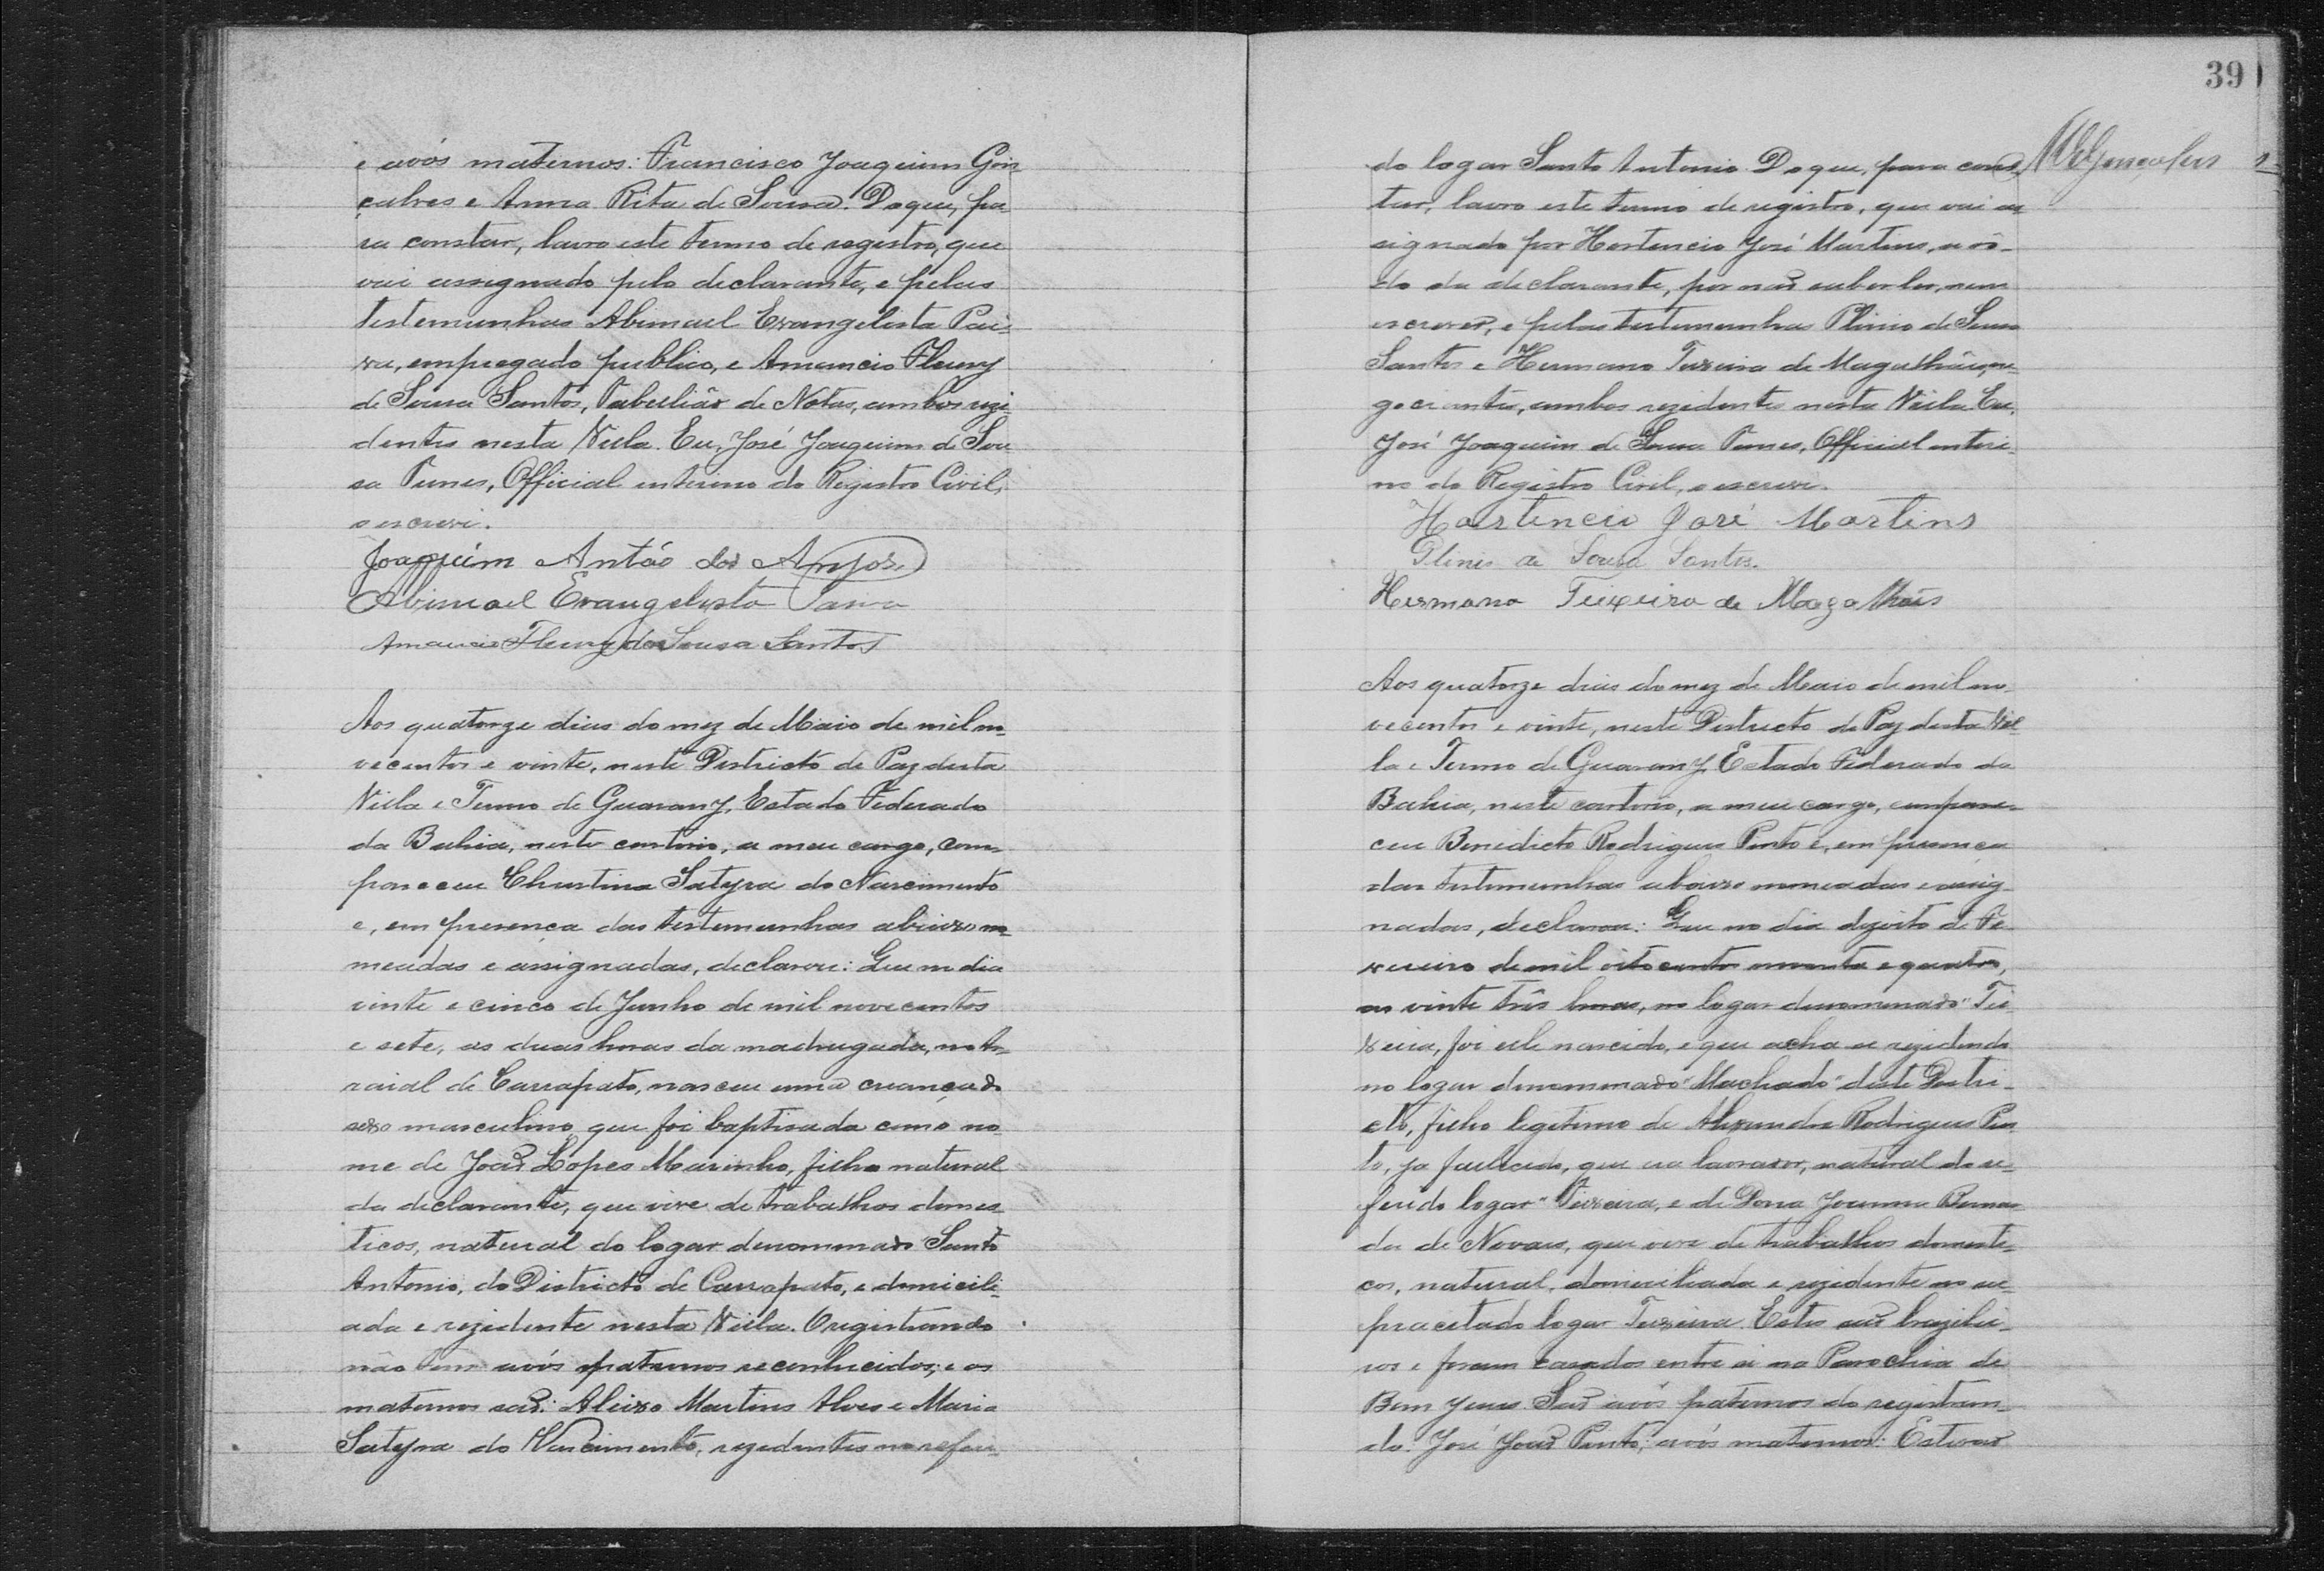 e avós maternos: Francisco Joaquim Gon
çalves e Anna Rita de Sousa. Do que, pa-
ra constar, lavro este termo de registro, que
vai assignado pelo declarante, e pelas
testemunhas Abimael Evangelista Pai-
va, empregado publico, e Amancio Fleury
de Sousa Santos, Tabellião de Notas, ambos rezi-
dentes nesta Villa. Eu, José Joaquim de Sou
sa Tunes, Official interino do Registro Civil,
o escrevi.
Joaquim Antão dos Anjos
Abimael Evangelista Paiva
Amancio Fleury de Sousa Santos
Aos quatorze dias do mez de Maio de mil no-
vecentos e vinte, neste Districto de Paz desta
Villa e Termo de Guarany, Estado Federado
da Bahia, neste cartorio, a meu cargo, com-
pareceu Christina Satyra do Nascimento
e, em presença das testemunhas abaixo no-
meadas e assignadas, declarou: Que no dia
vinte e cinco de Junho de mil novecentos
e sete, as duas horas da madrugada, no Ar-
raial de Carrapato, nasceu uma creança do
sexo masculino que foi baptisada com o no-
me de João Lopes Marinho, filho natural
da declarante, que vive de trabalhos domes-
ticos, natural do logar denominado "Santo
Antonio, do Districto de Carrapato, e domicili-
ada e rezidente nesta Villa. O registrando
não tem avós paternos reconhecidos; e os
maternos são: Aleixo Martins Alves e Maria
Satyra do Nascimento, rezidentes no referi-
39
do logar Santo Antonio. Do que, para cons-
tar, lavro este termo de registro, que vai as
signado por Hortencio José Martins, a rô-
do da declarante, por não saber ler, nem
escrever, e pelas testemunhas Plinio de Sousa
Santos e Hermano Teixeira de Magalhães, ne-
gociantes, ambos rezidentes nesta Villa. Eu,
José Joaquim de Sousa Tunes, Official interi-
no do Registro Civil, o escrevi.
Hortencio José Martins
Plinio de Sousa Santos.
Hermano Teixeira de Magalhães
Aos quatorze dias do mez de Maio de mil no-
vecentos e vinte, neste Districto de Paz desta Vil
la e Termo de Guarany, Estado Federado da
Bahia, neste cartorio, a meu cargo, compare-
ceu Benedicto Rodrigues Pinto e, em presença
das testemunhas abaixo nomeadas e assig-
nadas, declarou: Que no dia dezoito de Fe-
vereiro de mil oitocentos noventa e quatro,
as vinte três horas, no logar denominado "Tei
xeira, foi elle nascido, e que acha se rezidindo
no logar denominado "Machado" deste Distri-
cto, filho legitimo de Alexandre Rodrigues Pin
to, ja fallecido, que era lavrador, natural do re-
ferido logar "Teixeira, e de Dona Joanna Bernar
da de Novaes, que vive de trabalhos domesti-
cos, natural, domiciliada e rezidente no su-
pracitado logar Teixeira. Estes são brazilei-
ros e foram casados entre si na Parochia de
Bom Jesus. São avós paternos do registran-
do: José João Pinto; avós maternos: Estevão